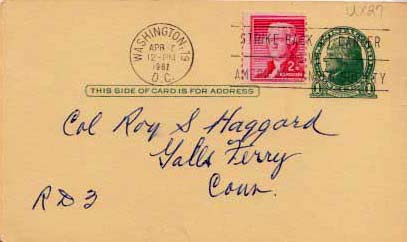 UX27
WASHINGTON, 19
APR 4
12-PM
1961
D.C.
2¢
STRIKE BACK CANCER
AMERICAN CANCER SOCIETY
THIS SIDE OF CARD IS FOR ADDRESS
Col Roy S Haggard
Galls Ferry
Conn.
R D 3